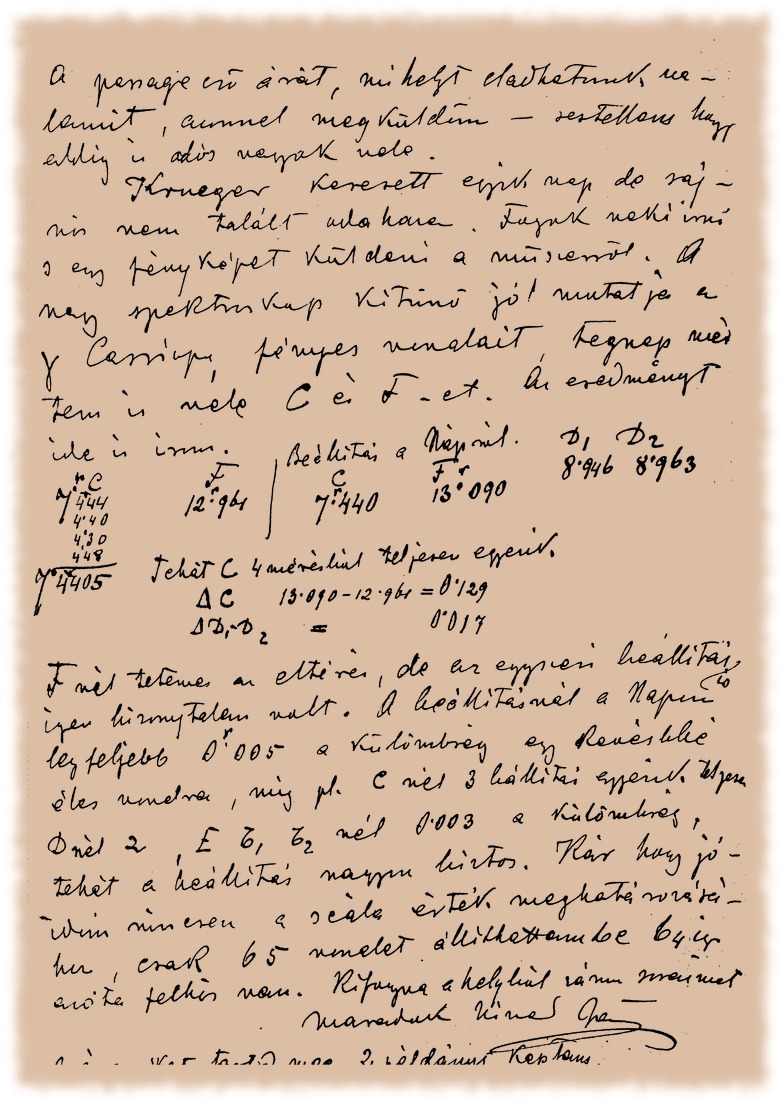 A passagecső árát, mihelyt eladhatunk va-
lamit, azonnal megküldöm – restellem hogy
eddig is adós vagyok vele.
Krueger keresett egyik nap de saj-
nos nem talált oda haza. Fogok neki írni
s egy fényképet küldeni a műszerről. A
nagy spektroskop kitünő jól mutatja a
γ Cassiope, fényes vonalait, tegnap mér
tem is vele C és F-et. Az eredményt
ide is írom.
Beállítás a Napnál. D1 D2
C F C F 8r.946 8r.963
7r.444 12r.961 7r.440 13r.090
4.40
4.30
448
7r.4405 Tehát C 4 mérésből teljesen egyezik.
ΔC 13.090-12.961 = 0r.129
ΔD1-D2 = 0r.017
F nél tetemes az eltérés, de az egyszeri beállítás
igen bizonytalan volt. A beállításnál a Napon
legfeljebb 0r.005 a külömbség egy kevésbbé
éles vonalra, míg pl. C nél 3 beállítás egyezik teljesen
D nél 2, E b1 b2 nél 0.003 a külömbség,
tehát a beállítás nagyon biztos. Kár hogy jó-
időm nincsen a scála érték meghatározásá-
hoz, csak 65 vonalat állíthattam be
azóta felhős van. Kifogyva a helyből zárom soraimat
maradok
2 példány